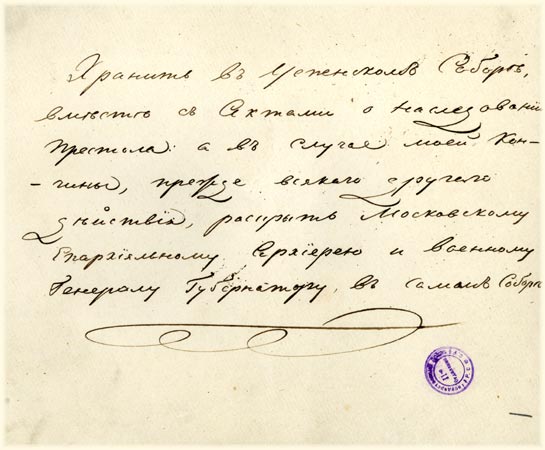 Хранить въ Успенскомъ Соборѣ,
вмѣстѣ съ Актами о наслѣдованiи
престола: а въ случаѣ моей кон-
-чины, прежде всякаго другаго
дѣйствiя, раскрыть Московскому
Епархiяльному Архiерею и военному
Генералу Губернатору, въ самомъ Соборѣ